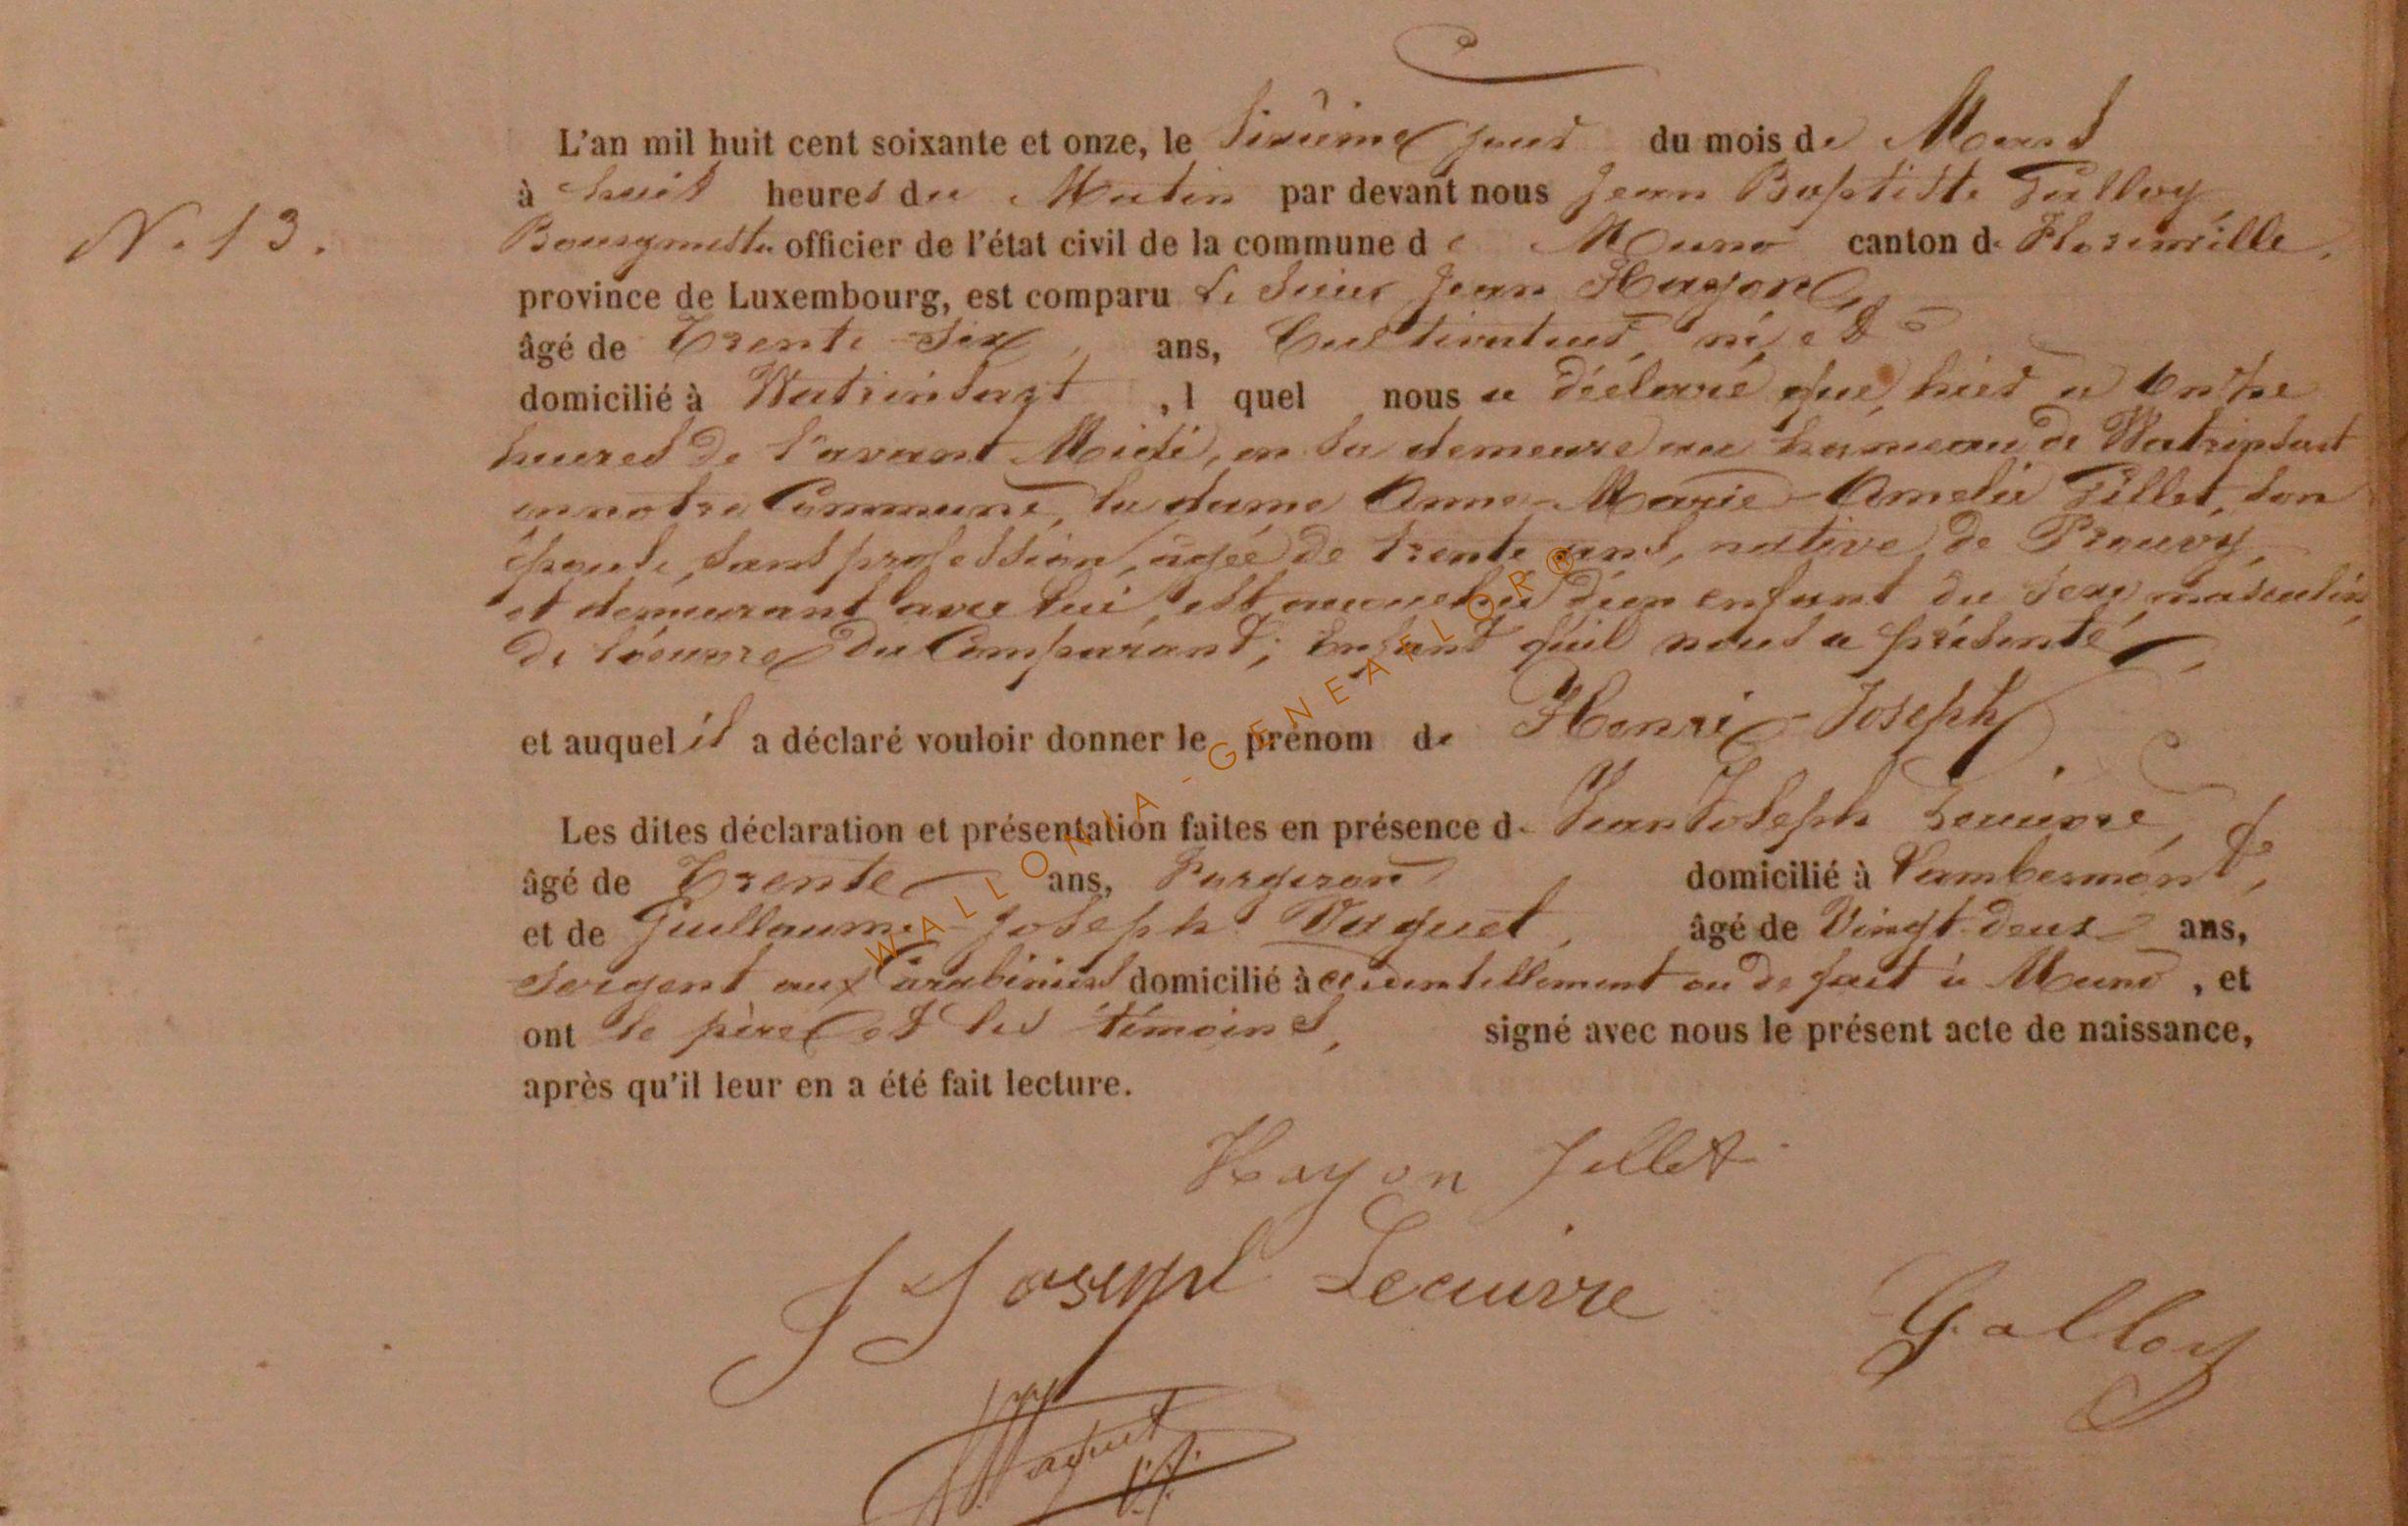 L'an mil huit cent soixante et onze, le Sixième jour du mois de Mars
à huit heures du Matin par devant nous Jean Baptiste Galloy
N. 13. Bourgmestre officier de l'état civil de la commune de Muno canton de Florenville,
province de Luxembourg, est comparu Le Sieur Jean Hayon
âgé de Trente Six, ans, Cultivateur, né et
domicilié à Watrinsart, l quel nous a déclaré que, hier à Onze
heures de l'avant Midi, en sa demeure au hameau de Watrinsart
en notre Commune, la dame Anne-Marie-Amelie Gillet, son
épouse, sans profession, agée de trente ans, native de Prouvy,
et demeurant avec lui, est accouchée d'un enfant du sexe masculin,
de l'oeuvre du Comparant; Enfant qu'il nous a présenté,
et auquel il a déclaré vouloir donner le prénom de Henri-Joseph.
Les dites déclaration et présentation faites en présence de Jean Joseph Lecuivre,
âgé de Trente ans, Forgeron domicilié à Lambermont,
et de Guillaume-Joseph Waguet, âgé de Vingt-deux ans,
Sergent aux Carabiniers domicilié à accidentellement ou de fait à Muno, et
ont le père et les témoins, signé avec nous le présent acte de naissance,
après qu'il leur en a été fait lecture.
Hayon Jillet
J Joseph Lecuivre
Galloy
Waguet
WALLONIA-GENEAFLOR®